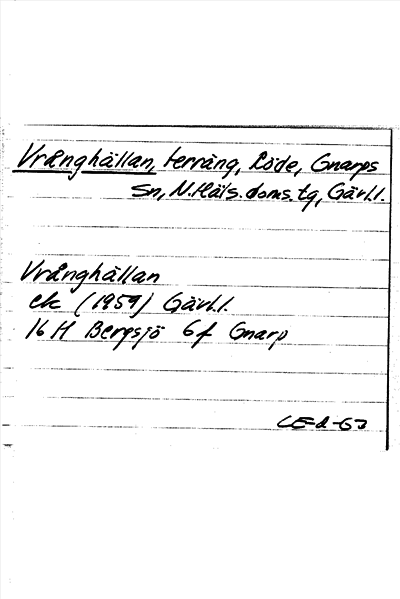 Vrånghällan, terräng, Röde, Gnarps
Sn, N. Häls. doms. tg, Gävl.l.
Vrånghällan
ek (1959) Gävl.l.
16 H Bergsjö 6f Gnarp